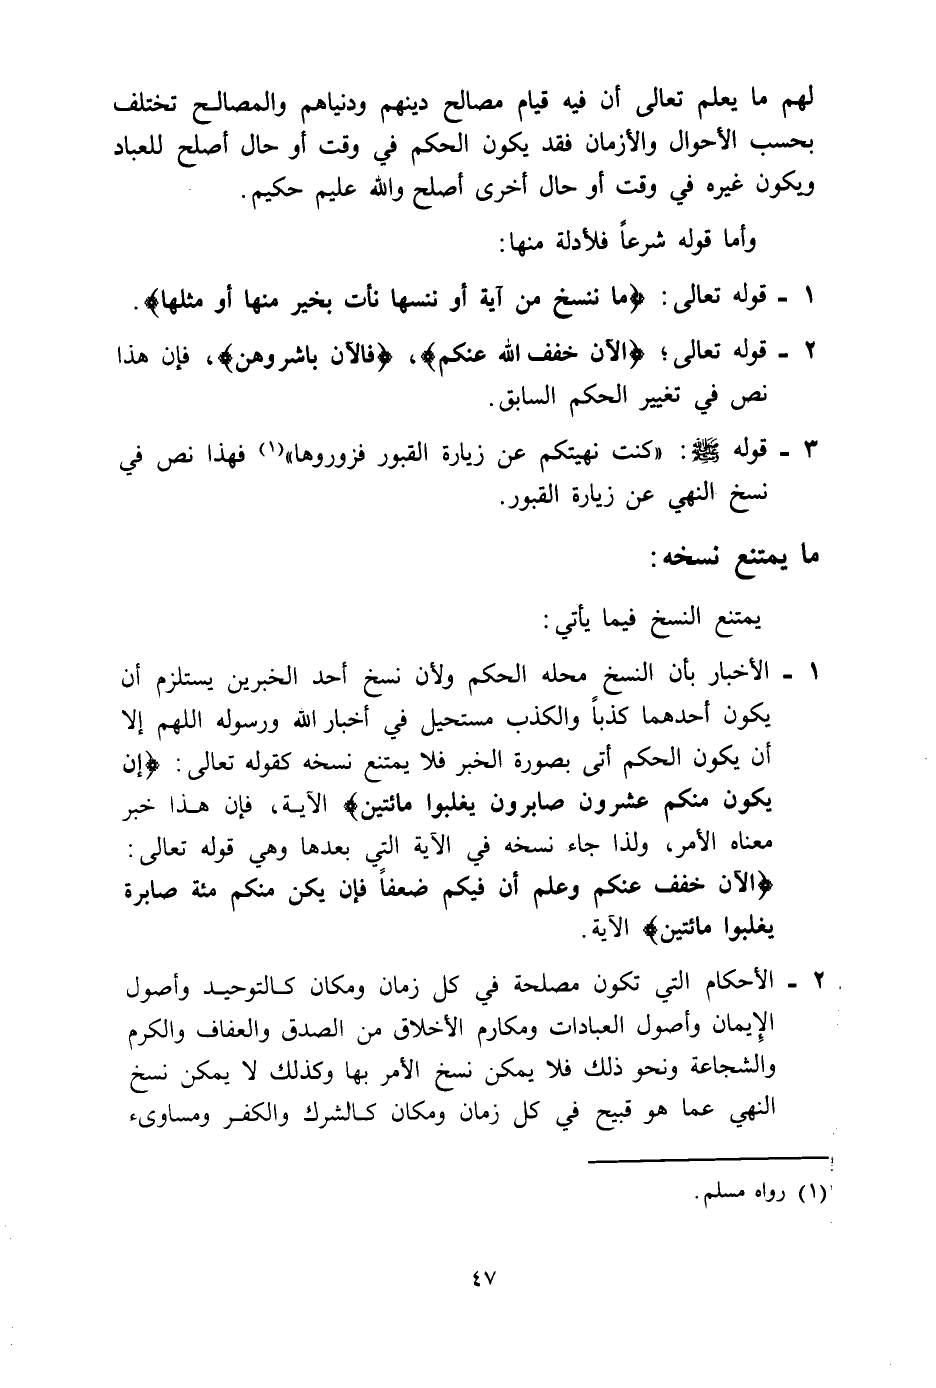 لهم ما يعلم تعالى أن فيه قيام مصالح دينهم ودنياهم والمصالح تختلف
بحسب الأحوال والأزمان فقد يكون الحكم في وقت أو حال أصلح للعباد
ويكون غيره في وقت أو حال أخرى أصلح والله عليم حكيم.
وأما قوله شرعاً فلأدلة منها:
١ - قوله تعالى: ﴿ما ننسخ من آية أو ننسها نأت بخير منها أو مثلها﴾.
٢ - قوله تعالى؛ ﴿الآن خفف الله عنكم﴾، ﴿فالآن باشروهن﴾، فإن هذا
نص في تغيير الحكم السابق.
٣ - قوله ﷺ: «كنت نهيتكم عن زيارة القبور فزوروها»(١) فهذا نص في
نسخ النهي عن زيارة القبور.
ما يمتنع نسخه:
يمتنع النسخ فيما يأتي:
١ - الأخبار بأن النسخ محله الحكم ولأن نسخ أحد الخبرين يستلزم أن
يكون أحدهما كذباً والكذب مستحيل في أخبار الله ورسوله اللهم إلا
أن يكون الحكم أتى بصورة الخبر فلا يمتنع نسخه كقوله تعالى: ﴿إن
يكون منكم عشرون صابرون يغلبوا مائتين﴾ الآية، فإن هذا خبر
معناه الأمر، ولذا جاء نسخه في الآية التي بعدها وهي قوله تعالى:
﴿الآن خفف عنكم وعلم أن فيكم ضعفاً فإن يكن منكم مئة صابرة
يغلبوا مائتين﴾ الآية.
٢ - الأحكام التي تكون مصلحة في كل زمان ومكان كالتوحيد وأصول
الإيمان وأصول العبادات ومكارم الأخلاق من الصدق والعفاف والكرم
والشجاعة ونحو ذلك فلا يمكن نسخ الأمر بها وكذلك لا يمكن نسخ
النهي عما هو قبيح في كل زمان ومكان كالشرك والكفر ومساوىء
(١) رواه مسلم.
٤٧